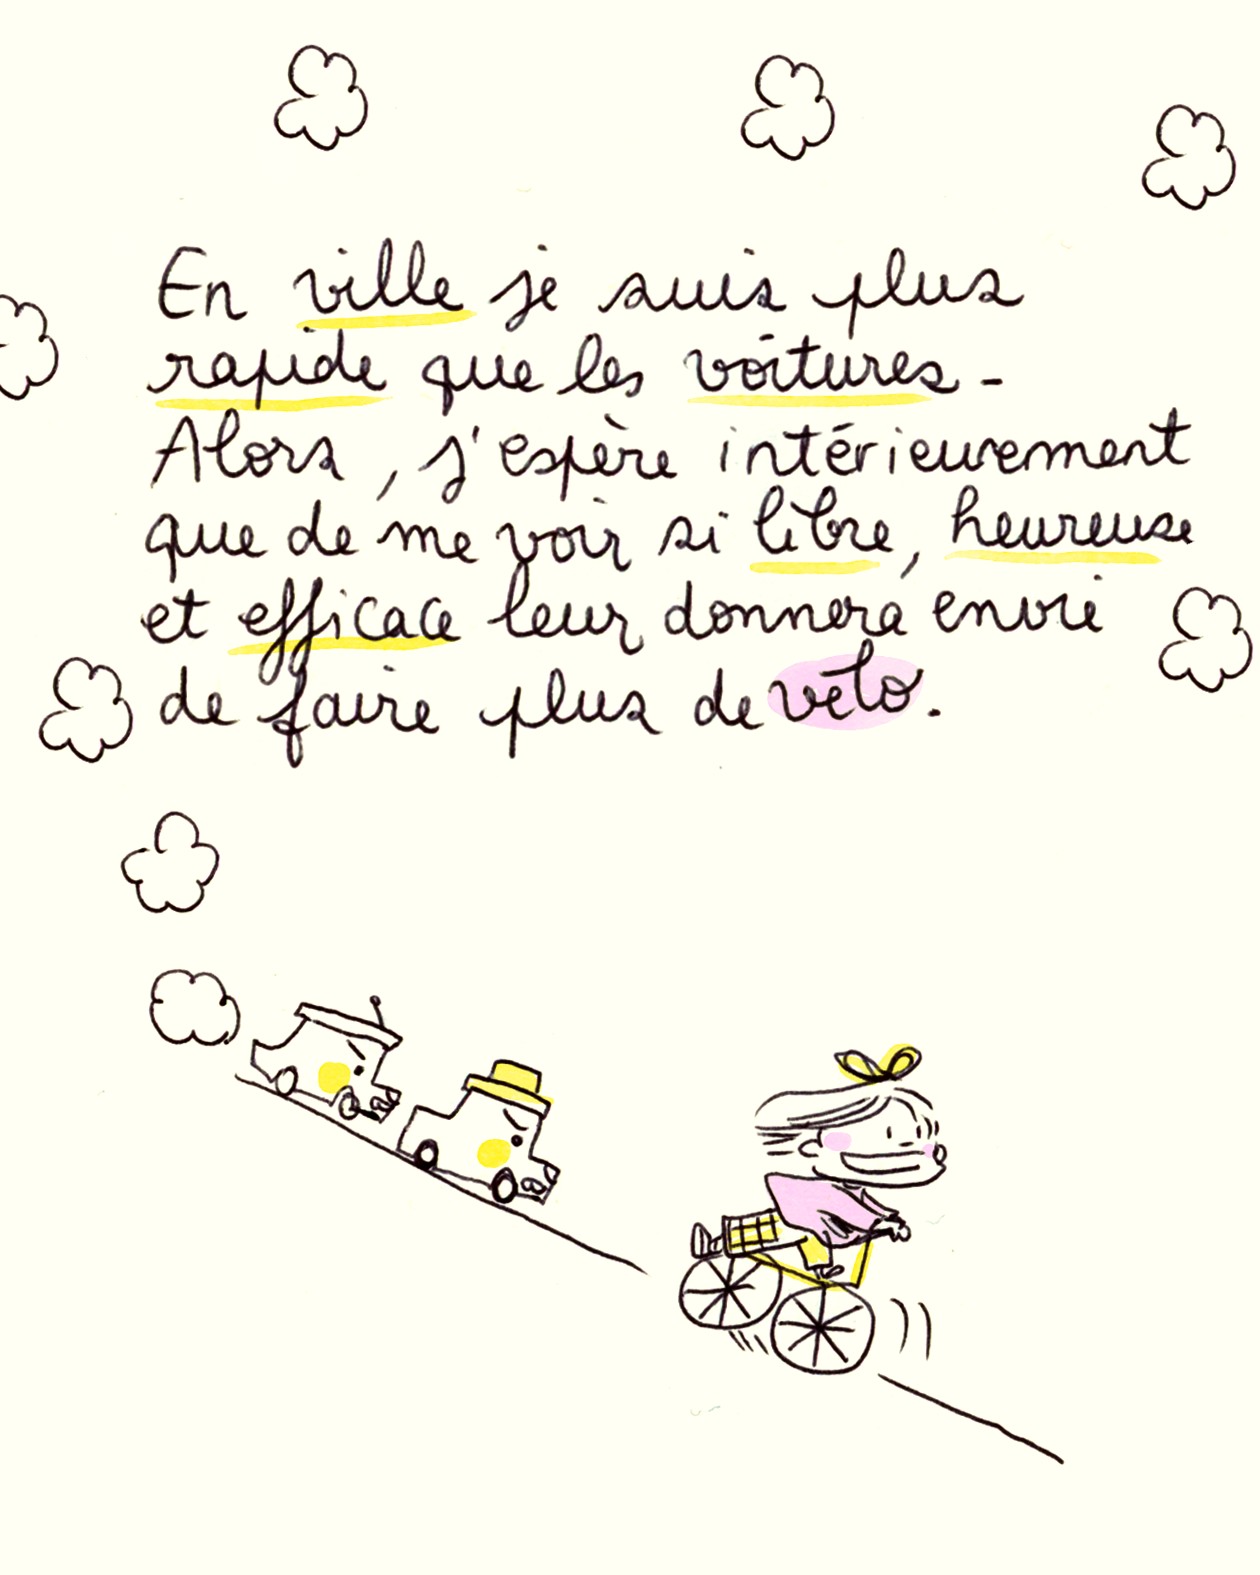 En ville je suis plus
rapide que les voitures -
Alors, j'espère intérieurement
que de me voir si libre, heureuse
et efficace leur donnera envie
de faire plus de vélo.